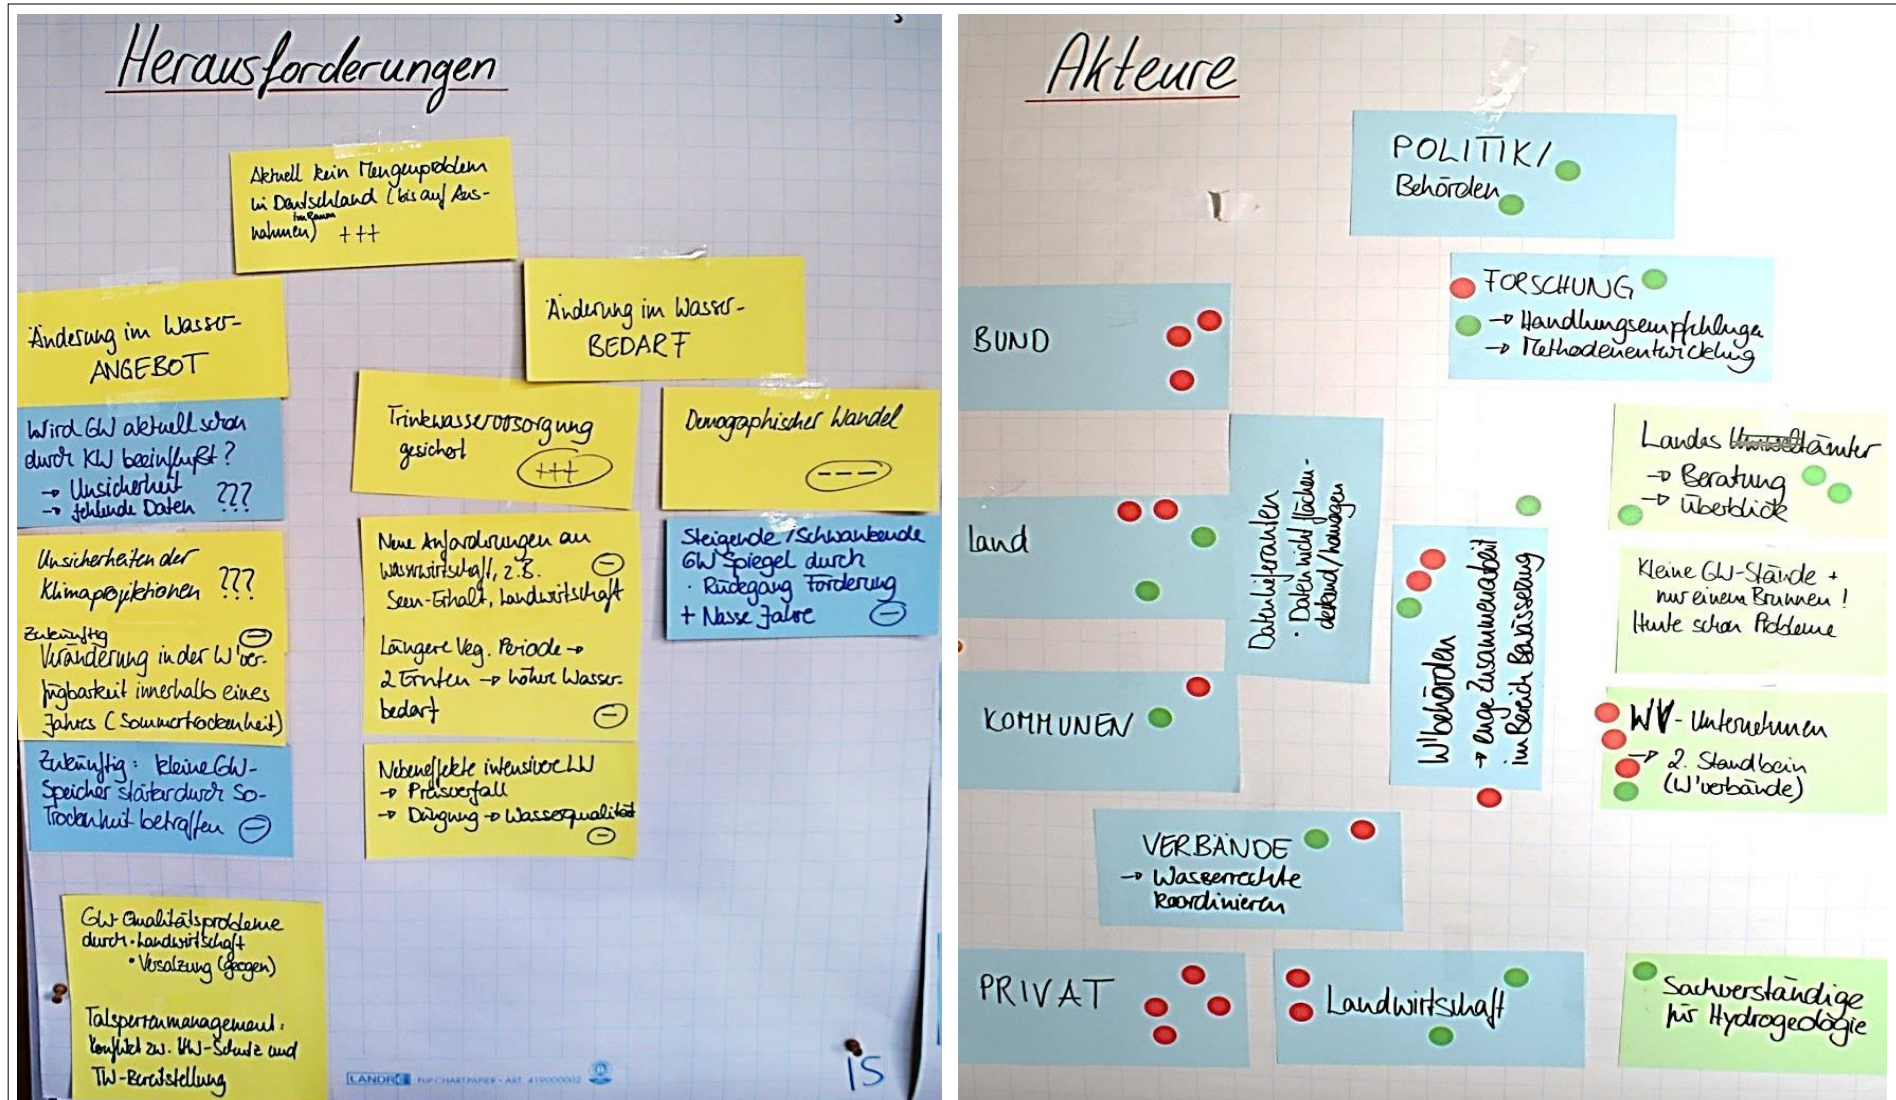 Herausforderungen
Aktuell kein Mengenproblem
in Deutschland (bis auf Aus-
nahmen) +++
Änderung im Wasser-
BEDARF
Änderung im Wasser-
ANGEBOT
Wird GW aktuell schon
durch KW beeinflußt?
→ Unsicherheit
→ fehlende Daten ???
Unsicherheiten der
Klimaprojektionen ???
Zukünftig
Veränderung in der W'ver-
fügbarkeit innerhalb eines
Jahres (Sommertrockenheit)
Zukünftig: kleine GW-
Speicher stärker durch So-
Trockenheit betroffen
GW-Qualitätsprobleme
durch · Landwirtschaft
· Versalzung (geogen)
Talsperrenmanagement:
Konflikt zw. HW-Schutz und
TW-Bereitstellung
Trinkwasserversorgung
gesichert
+++
Neue Anforderungen an
Wasserwirtschaft, z.B.
Seen-Erhalt, Landwirtschaft
Längere Veg. Periode →
2 Ernten → höher Wasser-
bedarf
Nebeneffekte intensiver LW
→ Preisverfall
→ Düngung → Wasserqualität
Demographischer Wandel
---
Steigende/Schwankende
GW Spiegel durch
· Rückgang Förderung
+ Nasse Jahre
LANDRÉ FLIP-CHART-PAPIER · ART. 419000002
15
Akteure
POLITIK/
Behörden
FORSCHUNG
→ Handlungsempfehlungen
→ Methodenentwicklung
BUND
Land
KOMMUNEN
Datenlieferanten
· Daten nicht flächen-
deckend/homogen
W'behörden
→ enge Zusammenarbeit
im Bereich Bewässerung
Landesämter
→ Beratung
→ Überblick
Kleine GW-Stände +
nur einem Brunnen!
Heute schon Probleme
WV-Unternehmen
→ 2. Standbein
(W'verbände)
VERBÄNDE
→ Wasserrechte
koordinieren
PRIVAT
Landwirtschaft
Sachverständige
für Hydrogeologie